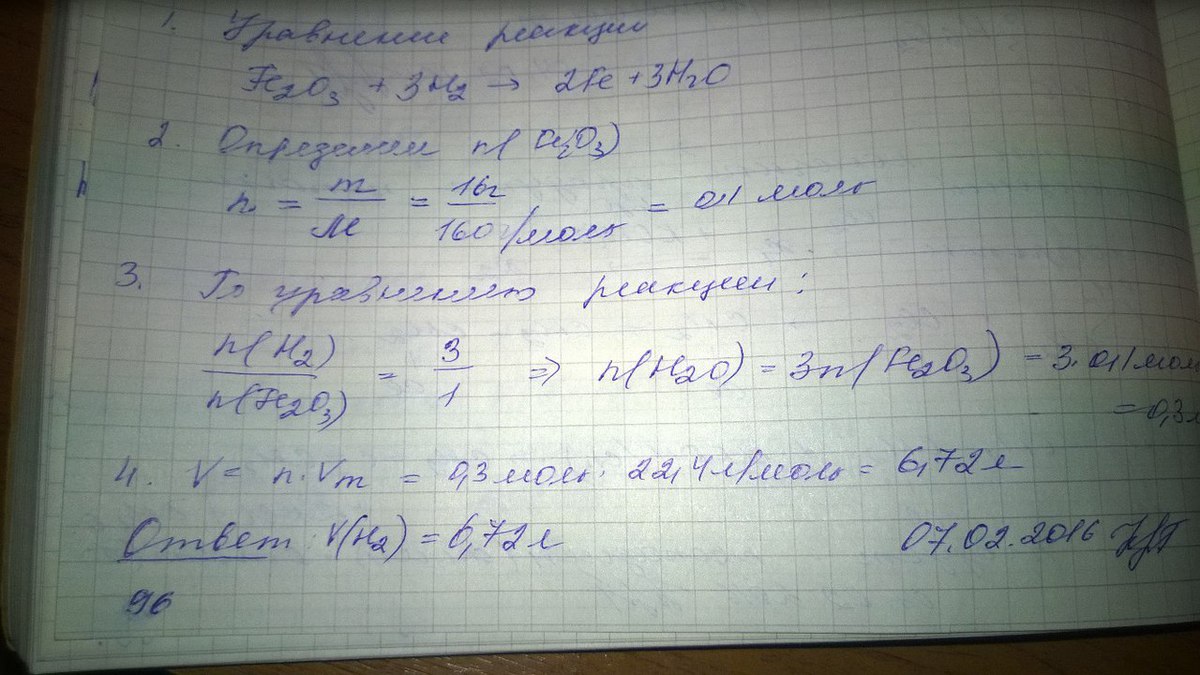 1. Уравнение реакции
Fe₂O₃ + 3H₂ → 2Fe + 3H₂O
2. Определяем n(Fe₂O₃)
n = m/M = 16г/160/моль = 0,1 моль
3. По уравнению реакции:
n(H₂)/n(Fe₂O₃) = 3/1 => n(H₂O) = 3n(Fe₂O₃) = 3·0,1 мол
= 0,3
4. V = n·Vm = 0,3 моль·22,4 л/моль = 6,72 л
Ответ: V(H₂) = 6,72 л
07.02.2016
96